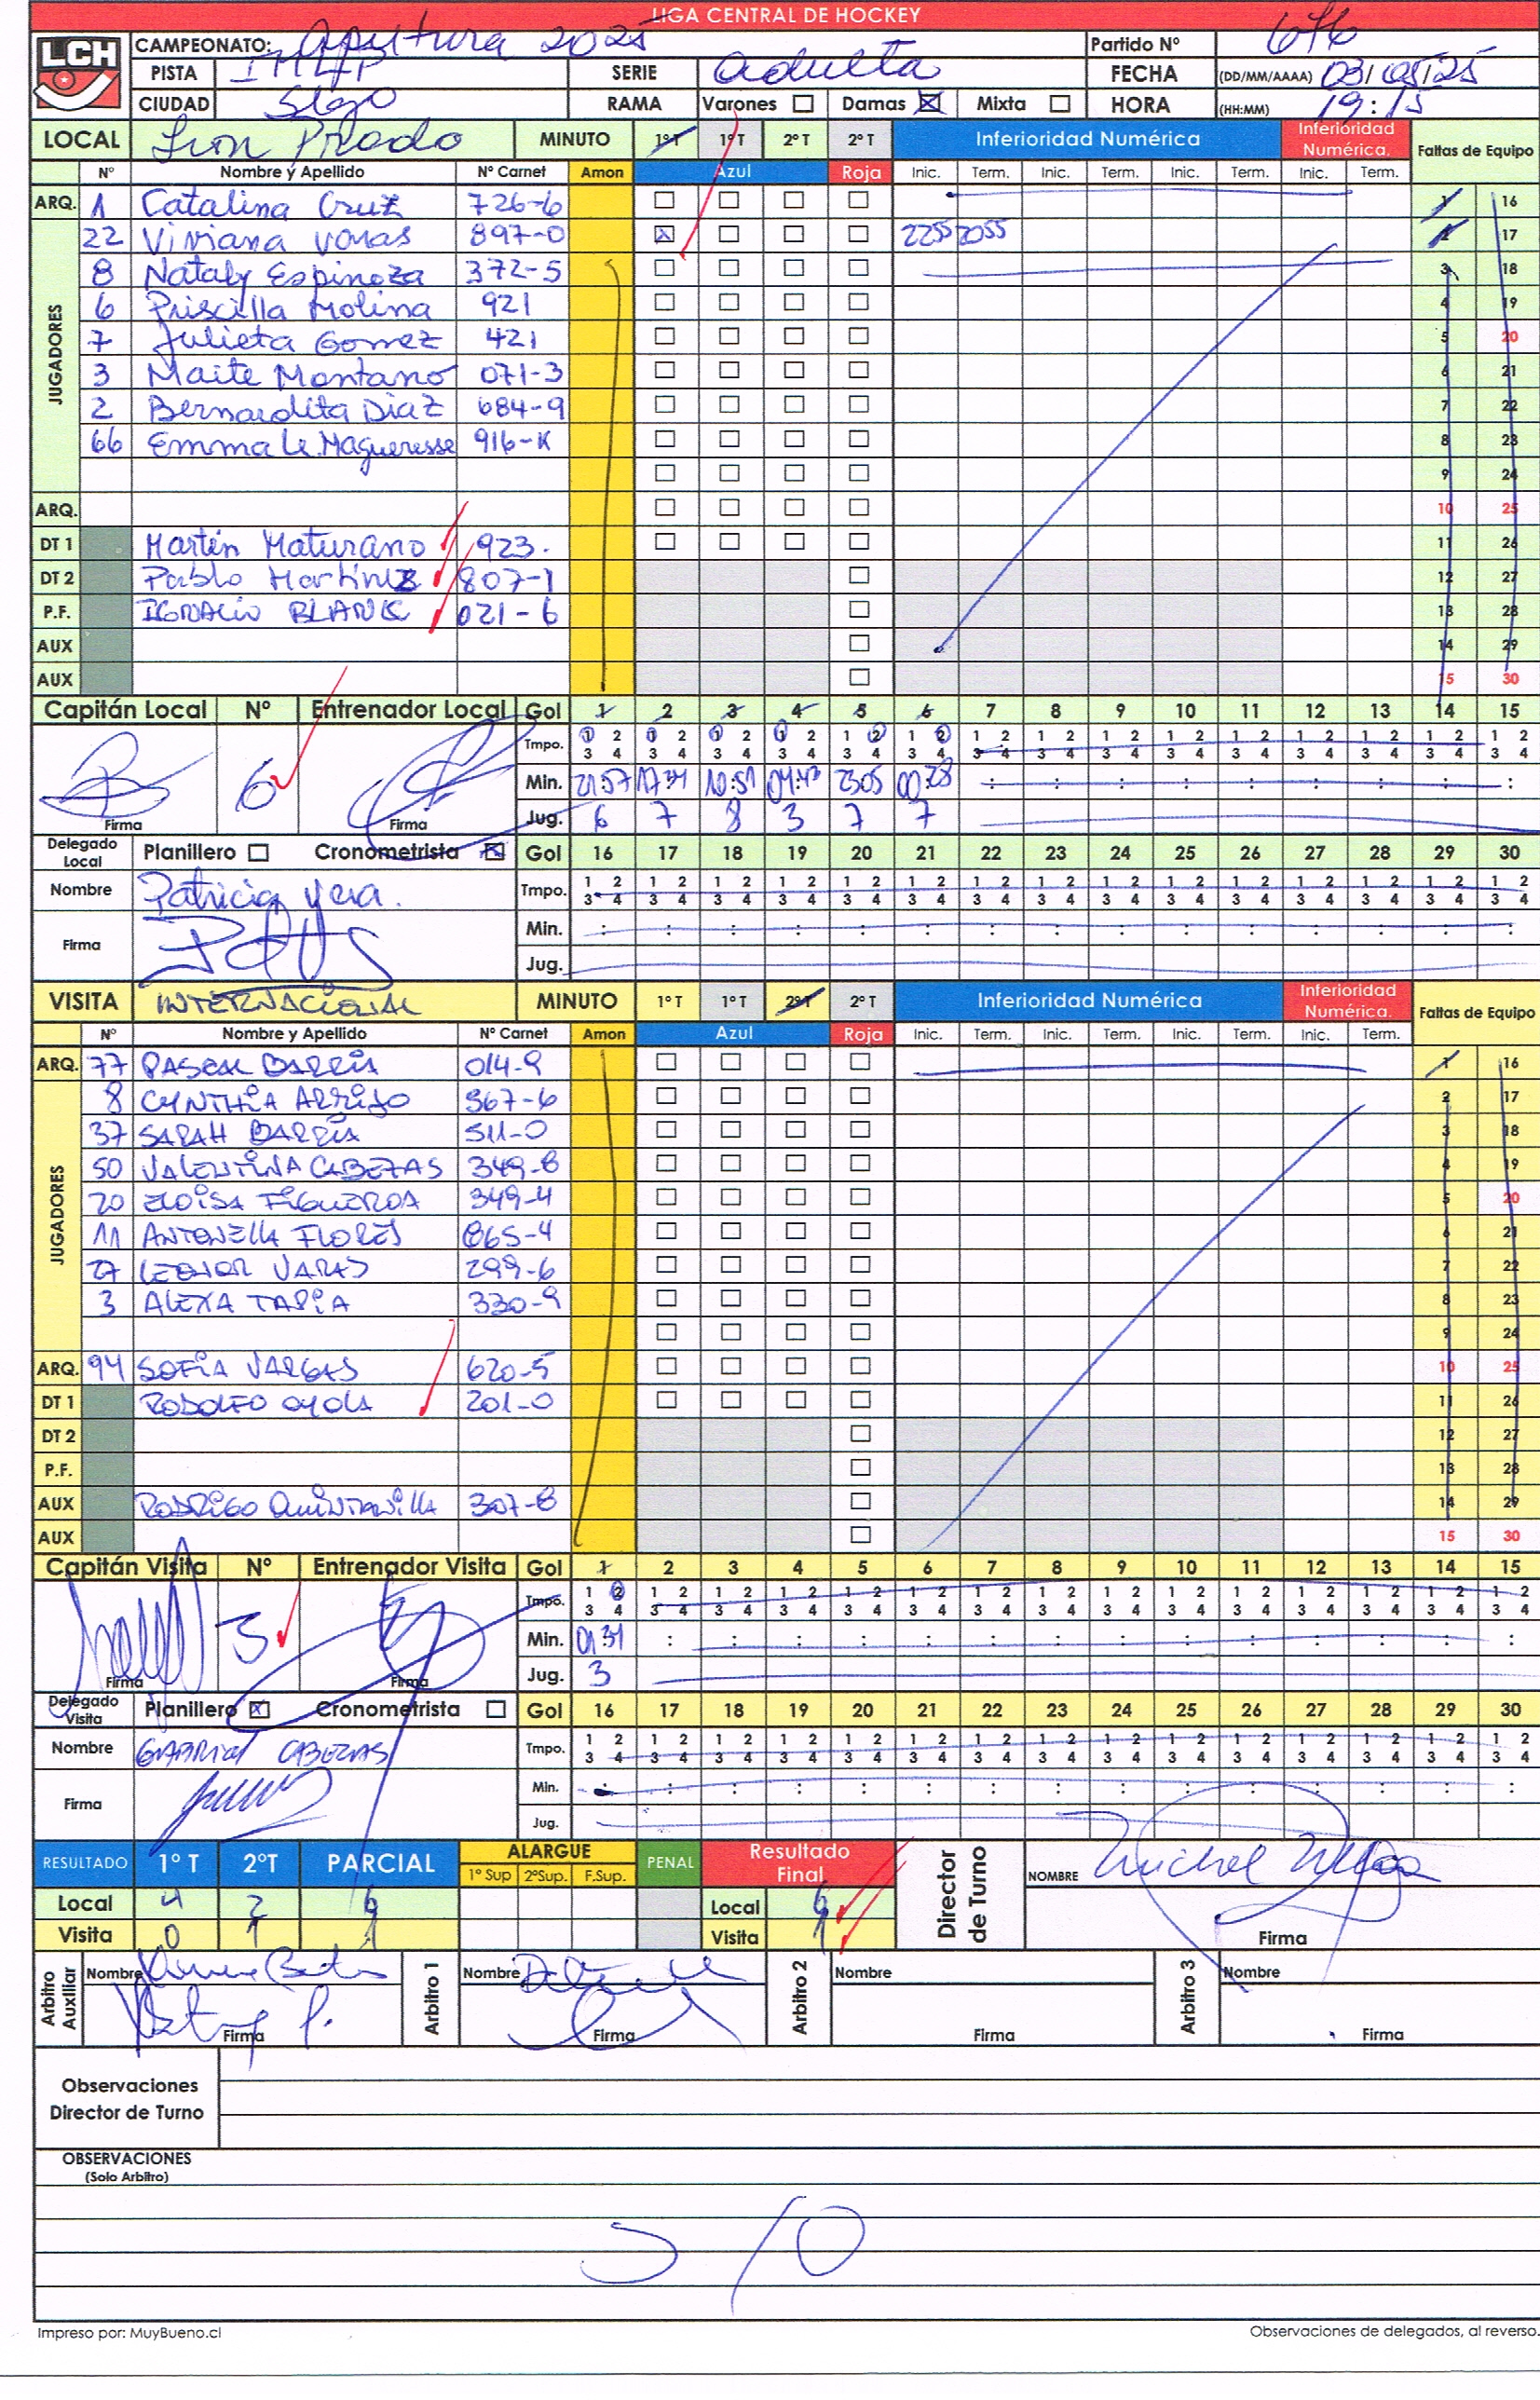 LIGA CENTRAL DE HOCKEY
LCH
CAMPEONATO: Apertura 2025 Partido Nº 676
PISTA SERIE Adulta FECHA (DD/MM/AAAA) 03/05/25
CIUDAD Stgo RAMA Varones Damas X Mixta HORA (HH:MM) 19:15
LOCAL Leon Prado MINUTO 1º T 1º T 2º T 2º T Inferioridad Numérica Inferioridad Numérica. Faltas de Equipo
Nº Nombre y Apellido Nº Carnet Amon Azul Roja Inic. Term. Inic. Term. Inic. Term. Inic. Term.
ARQ. 1 Catalina Cruz 726-6 1 16
JUGADORES
22 Viviana Varas 897-0 X 2255 2055 2 17
8 Nataly Espinoza 372-5 3 18
6 Priscilla Molina 921 4 19
7 Julieta Gomez 421 5 20
3 Maite Montano 071-3 6 21
2 Bernardita Diaz 684-9 7 22
66 Emma Le Magueresse 916-K 8 23
9 24
ARQ. 10 25
DT 1 Martin Maturano 923. 11 26
DT 2 Pablo Martinez 807-1 12 27
P.F. IGNACIO BLANK 021-6 13 28
AUX 14 29
AUX 15 30
Capitán Local Nº Entrenador Local Gol 1 2 3 4 5 6 7 8 9 10 11 12 13 14 15
Tmpo. 1 2 3 4 1 2 3 4 1 2 3 4 1 2 3 4 1 2 3 4 1 2 3 4 1 2 3 4 1 2 3 4 1 2 3 4 1 2 3 4 1 2 3 4 1 2 3 4 1 2 3 4 1 2 3 4 1 2 3 4
6 Min. 21:57 17:31 10:51 04:43 2305 00:28 : : : : : : : : :
Firma Firma Jug. 6 7 8 3 7 7
Delegado Local Planillero Cronometrista X Gol 16 17 18 19 20 21 22 23 24 25 26 27 28 29 30
Nombre Patricia Vera. Tmpo. 1 2 3 4 1 2 3 4 1 2 3 4 1 2 3 4 1 2 3 4 1 2 3 4 1 2 3 4 1 2 3 4 1 2 3 4 1 2 3 4 1 2 3 4 1 2 3 4 1 2 3 4 1 2 3 4 1 2 3 4
Firma Min. : : : : : : : : : : : : : : :
Jug.
VISITA INTERNACIONAL MINUTO 1º T 1º T 2º T 2º T Inferioridad Numérica Inferioridad Numérica. Faltas de Equipo
Nº Nombre y Apellido Nº Carnet Amon Azul Roja Inic. Term. Inic. Term. Inic. Term. Inic. Term.
ARQ. 77 PASCAL BARRÍA 014-9 1 16
JUGADORES
8 CYNTHIA ARRIJO 567-6 2 17
37 SARAH BARRÍA 511-0 3 18
50 VALENTINA CABEZAS 349-8 4 19
20 ELOÍSA FIGUEROA 349-4 5 20
11 ANTONELLA FLORES 865-4 6 21
27 LEONOR VARAS 299-6 7 22
3 ALEXA TAPIA 330-9 8 23
9 24
ARQ. 94 SOFÍA VARGAS 620-5 10 25
DT 1 RODOLFO OYOLA 201-0 11 26
DT 2 12 27
P.F. 13 28
AUX RODRIGO QUINTANILLA 307-8 14 29
AUX 15 30
Capitán Visita Nº Entrenador Visita Gol 1 2 3 4 5 6 7 8 9 10 11 12 13 14 15
Tmpo. 1 2 3 4 1 2 3 4 1 2 3 4 1 2 3 4 1 2 3 4 1 2 3 4 1 2 3 4 1 2 3 4 1 2 3 4 1 2 3 4 1 2 3 4 1 2 3 4 1 2 3 4 1 2 3 4 1 2 3 4
3 Min. 01:31 : : : : : : : : : : : : : :
Firma Firma Jug. 3
Delegado Visita Planillero X Cronometrista Gol 16 17 18 19 20 21 22 23 24 25 26 27 28 29 30
Nombre GABRIEL CABEZAS Tmpo. 1 2 3 4 1 2 3 4 1 2 3 4 1 2 3 4 1 2 3 4 1 2 3 4 1 2 3 4 1 2 3 4 1 2 3 4 1 2 3 4 1 2 3 4 1 2 3 4 1 2 3 4 1 2 3 4 1 2 3 4
Firma Min. : : : : : : : : : : : : : : :
Jug.
RESULTADO 1º T 2ºT PARCIAL ALARGUE 1º Sup 2ºSup. F.Sup. PENAL Resultado Final Director de Turno NOMBRE
Local 4 2 6 Local 6
Visita 0 1 1 Visita 1 Firma
Arbitro Auxiliar Nombre Arbitro 1 Nombre Arbitro 2 Nombre Arbitro 3 Nombre
Firma Firma Firma Firma
Observaciones Director de Turno
OBSERVACIONES (Solo Arbitro)
S/O
Impreso por: MuyBueno.cl Observaciones de delegados, al reverso.